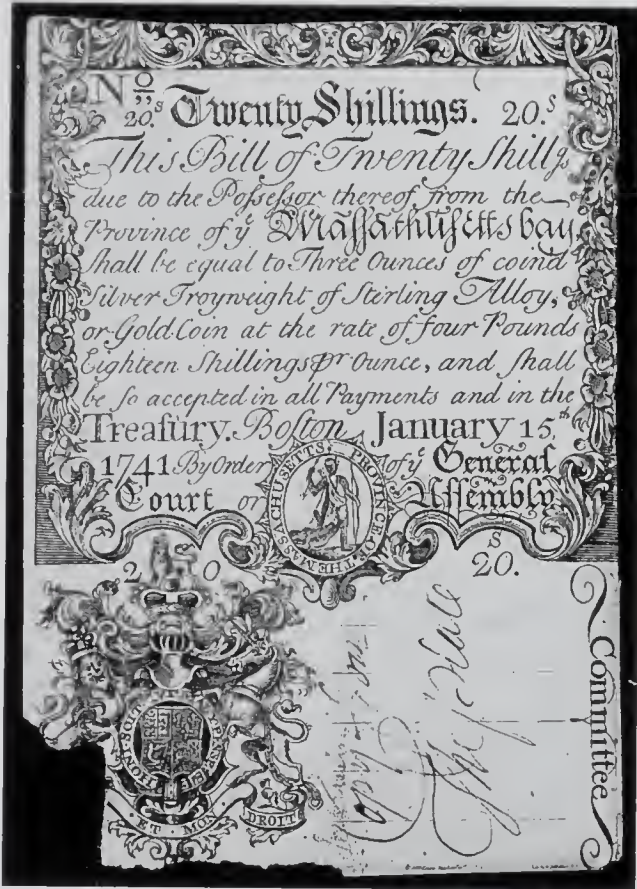 No
20.s Twenty Shillings. 20.s
This Bill of Twenty Shillgs
due to the Poſseſsor thereof from the
Province of ye Maſſathuſetts bay
ſhall be equal to Three Ounces of coind
Silver Troyweight of Sterling Alloy,
or Gold Coin at the rate of four Pounds
Eighteen Shillings Pr Ounce, and ſhall
be ſo accepted in all Payments and in the
Treaſury. Boſton January 15th
1741 By Order of ye General
Court or Aſſembly
MASSACHUSETTS PROVINCE OF THE
2 0
s
20.
HONI SOIT Y PENSE
ET MON DROIT
Committee